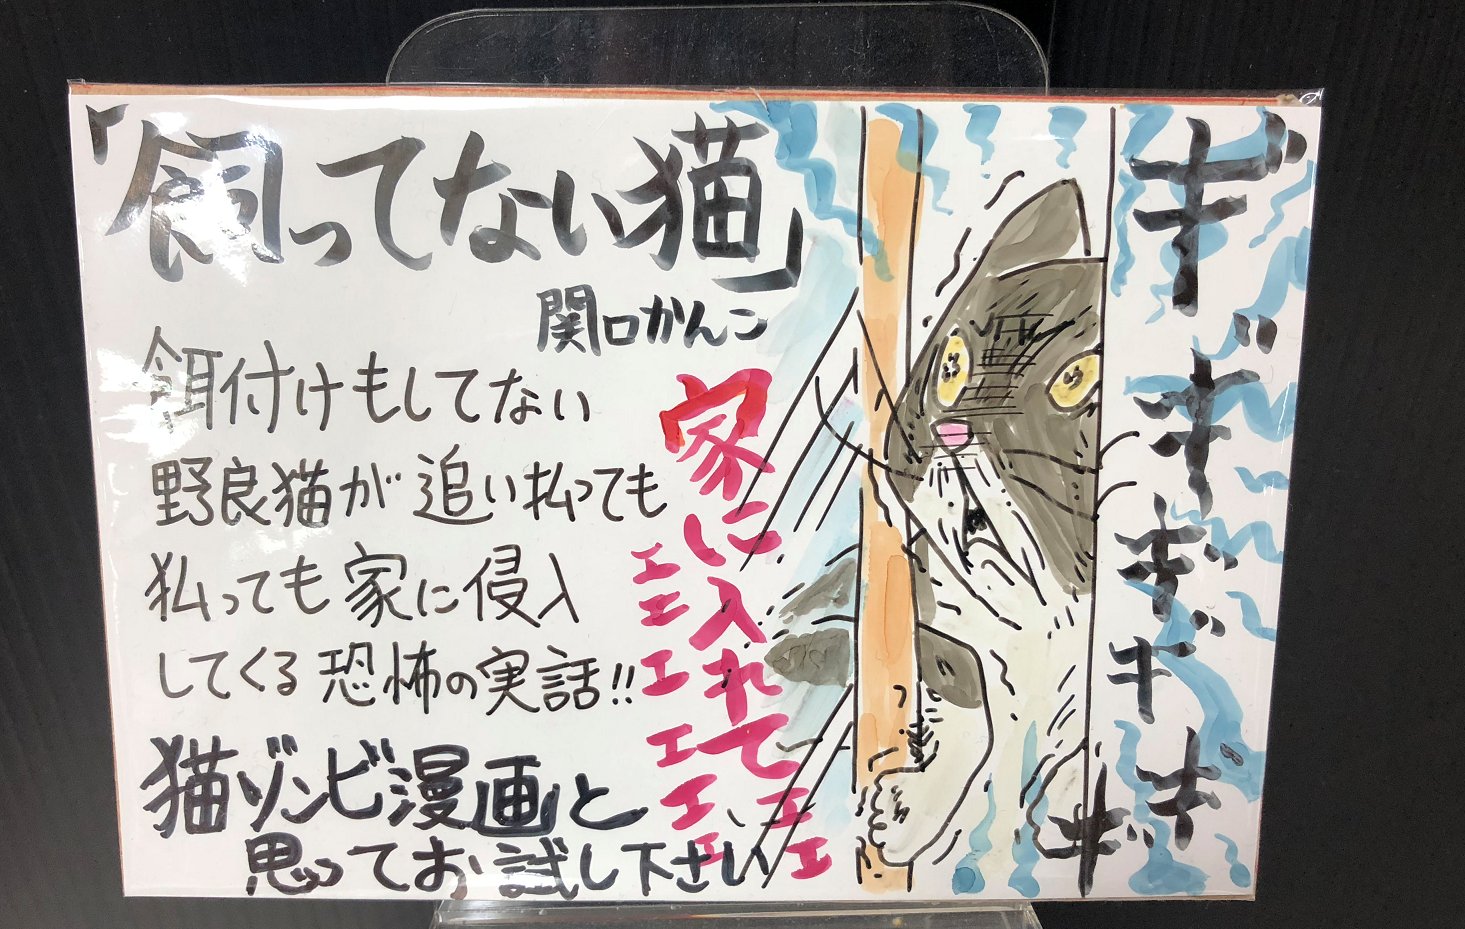 「飼ってない猫」
関口かんこ
餌付けもしてない
野良猫が追い払っても
払っても家に侵入
してくる恐怖の実話!!
猫ゾンビ漫画と
思ってお試し下さい
家に入れてエエ
エエエエエエ
ギギギギギギ